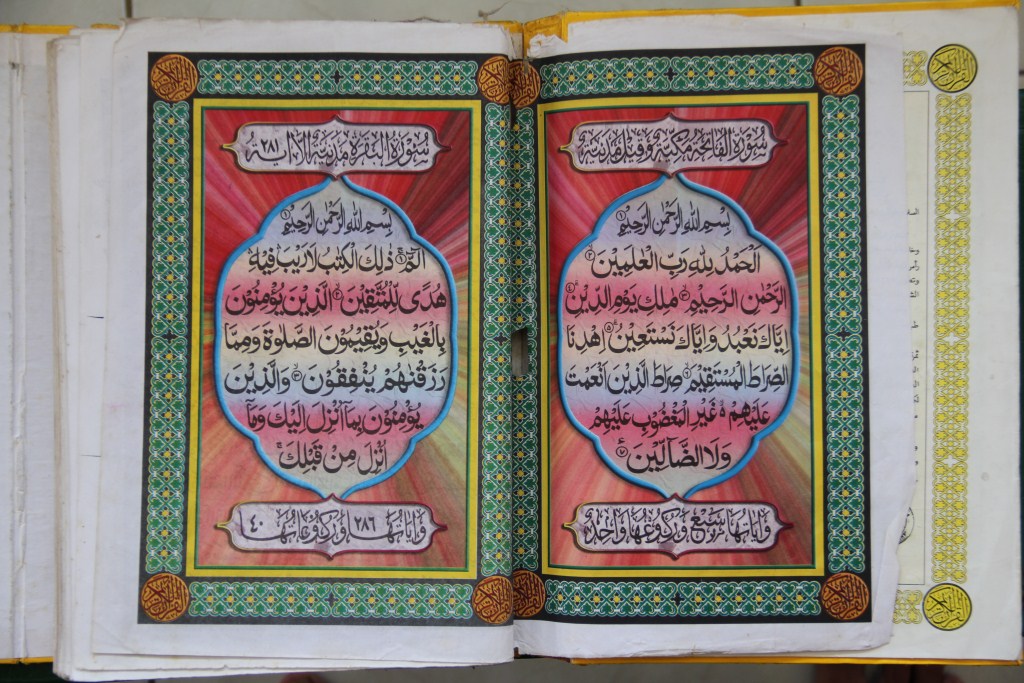 سُوْرَةُ الْفَاتِحَةِ مَكِّيَّةٌ وَقِيْلَ مَدَنِيَّةٌ
بِسْمِ اللهِ الرَّحْمٰنِ الرَّحِيْمِ ١
اَلْحَمْدُ لِلّٰهِ رَبِّ الْعٰلَمِيْنَ ٢
الرَّحْمٰنِ الرَّحِيْمِ ٣ مٰلِكِ يَوْمِ الدِّيْنِ ٤
اِيَّاكَ نَعْبُدُ وَاِيَّاكَ نَسْتَعِيْنُ ٥ اِهْدِنَا
الصِّرَاطَ الْمُسْتَقِيْمَ ٦ صِرَاطَ الَّذِيْنَ اَنْعَمْتَ
عَلَيْهِمْ ەۙ غَيْرِ الْمَغْضُوْبِ عَلَيْهِمْ
وَلَا الضَّآلِّيْنَ ٧
وَاٰيَاتُهَا سَبْعٌ وَرُكُوْعُهَا وَاحِدَةٌ
سُوْرَةُ الْبَقَرَةِ مَدَنِيَّةٌ اِلَّا اٰيَة ٢٨١
بِسْمِ اللهِ الرَّحْمٰنِ الرَّحِيْمِ
الٓمّٓ ١ ذٰلِكَ الْكِتٰبُ لَا رَيْبَ فِيْهِ
هُدًى لِّلْمُتَّقِيْنَ ٢ الَّذِيْنَ يُؤْمِنُوْنَ
بِالْغَيْبِ وَيُقِيْمُوْنَ الصَّلٰوةَ وَمِمَّا
رَزَقْنٰهُمْ يُنْفِقُوْنَ ٣ وَالَّذِيْنَ
يُؤْمِنُوْنَ بِمَآ اُنْزِلَ اِلَيْكَ وَمَآ
اُنْزِلَ مِنْ قَبْلِكَ
وَاٰيَاتُهَا ٢٨٦ وَرُكُوْعَاتُهَا ٤٠